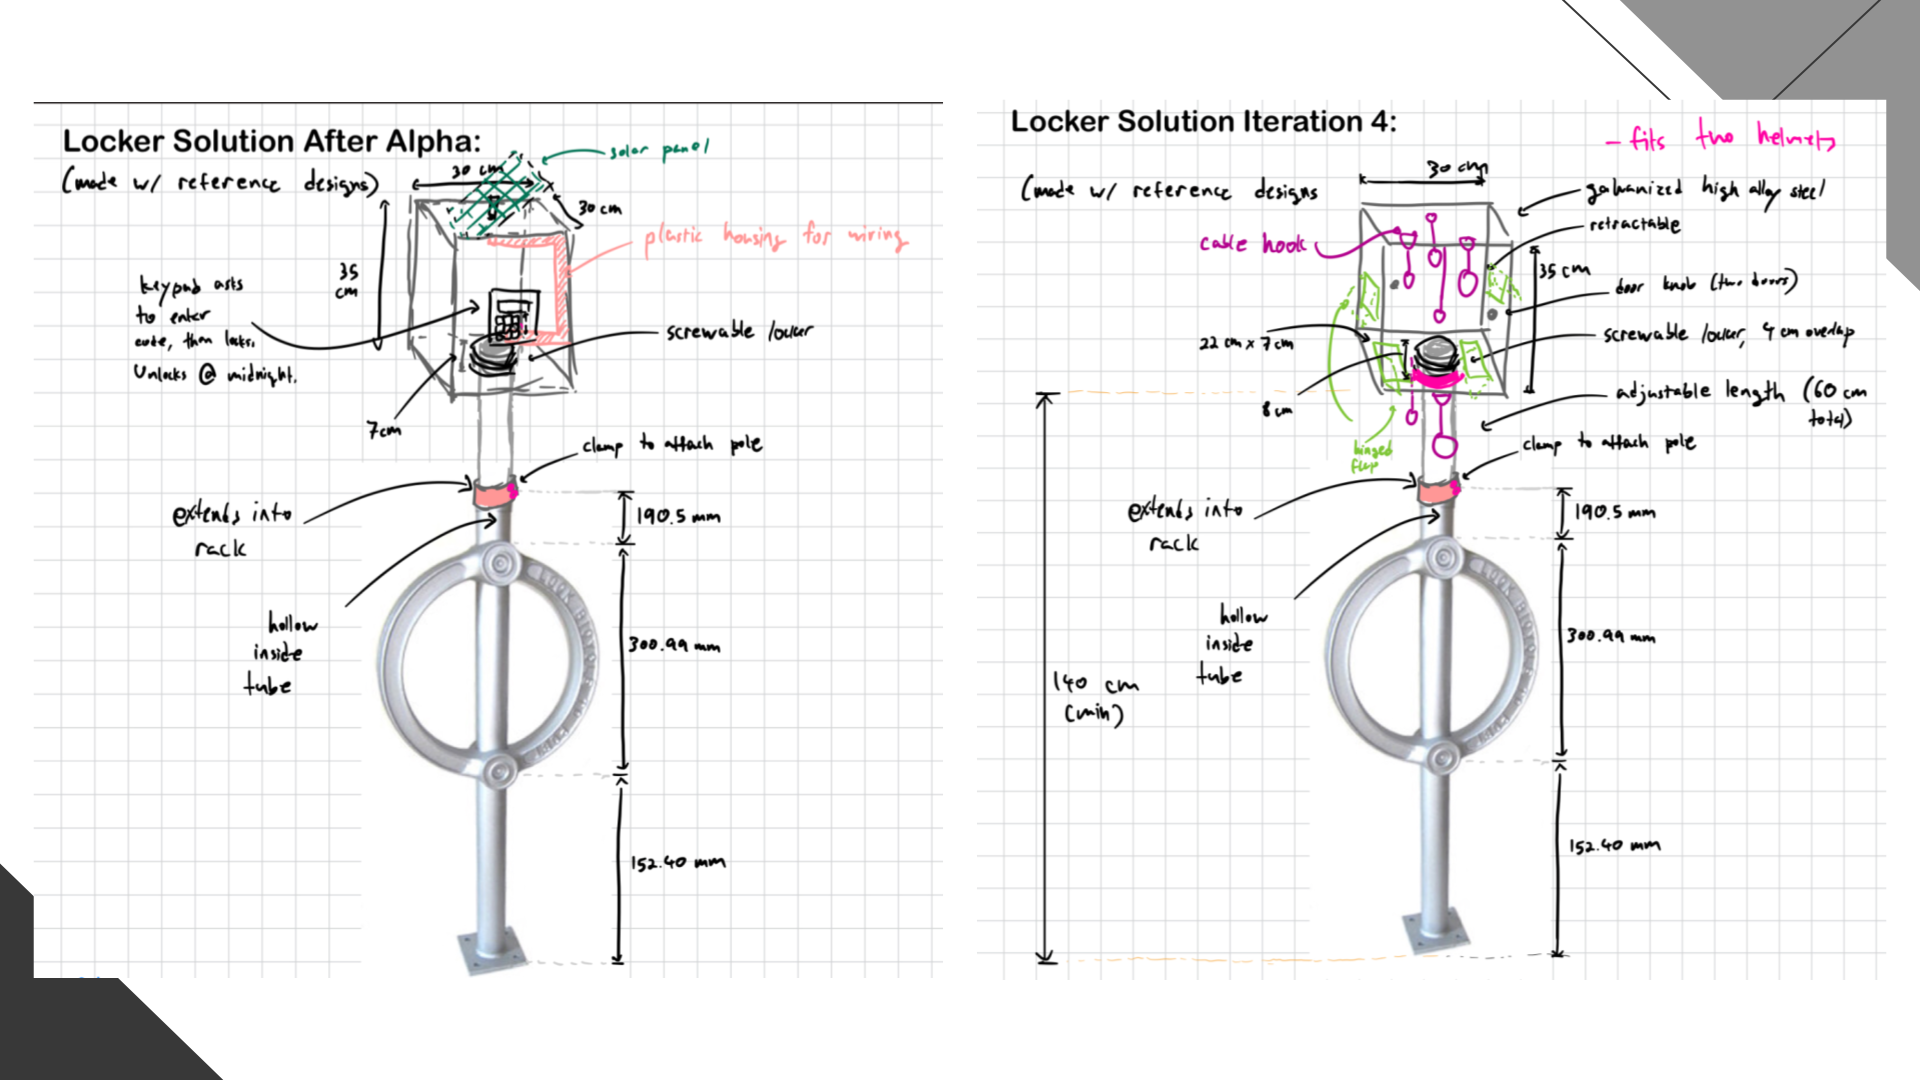 Locker Solution After Alpha:
(made w/ reference designs)
solar panel
30 cm
30 cm
plastic housing for wiring
35
cm
keypad asks
to enter
code, then locks.
Unlocks @ midnight.
screwable
7cm
clamp to attach pole
extends into
rack
190.5 mm
hollow
inside
tube
300.99 mm
152.40 mm
Locker Solution Iteration 4:
- fits two helmets
(made w/ reference designs
30 cm
galvanized high alloy steel
retractable
cable hook
35 cm
door knob (two doors)
22 cm x 7 cm
screwable 4 cm overlap
8 cm
adjustable length (60 cm
total)
hinged
flap
clamp to attach pole
extends into
rack
190.5 mm
hollow
inside
tube
300.99 mm
140 cm
(min)
152.40 mm